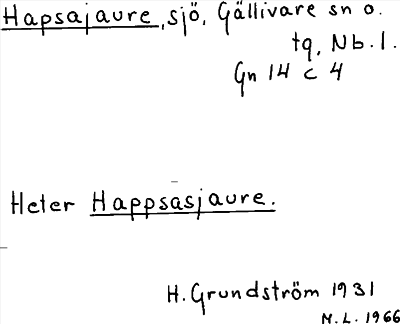 Hapsajaure, sjö, Gällivare sn o.
tg, Nb. l.
Gn 14 c 4
Heter Happsasjaure.
H. Grundström 1931
M. L. 1966